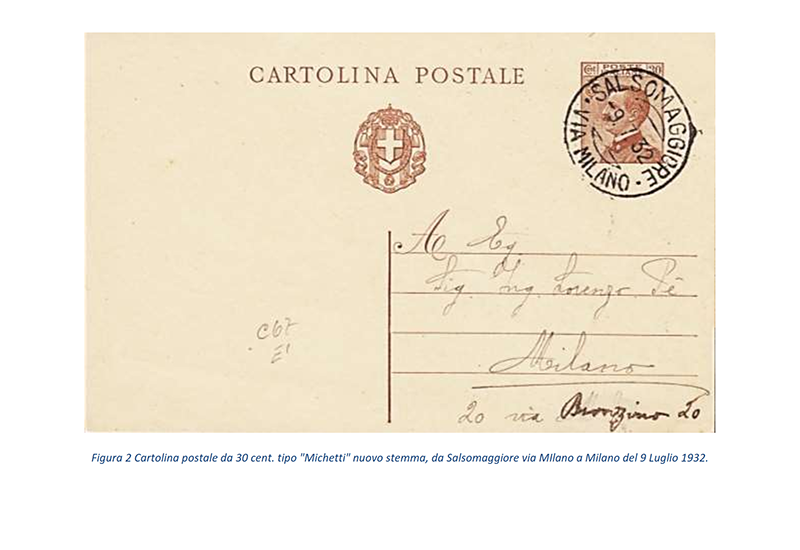 CARTOLINA POSTALE
Cent POSTE 30
SALSOMAGGIORE - VIA MILANO
-9.7.32
A Eg
Sig Ing Lorenzo Pé
Milano
20 via Bronzino 20
C67
E1
Figura 2 Cartolina postale da 30 cent. tipo "Michetti" nuovo stemma, da Salsomaggiore via MIlano a Milano del 9 Luglio 1932.